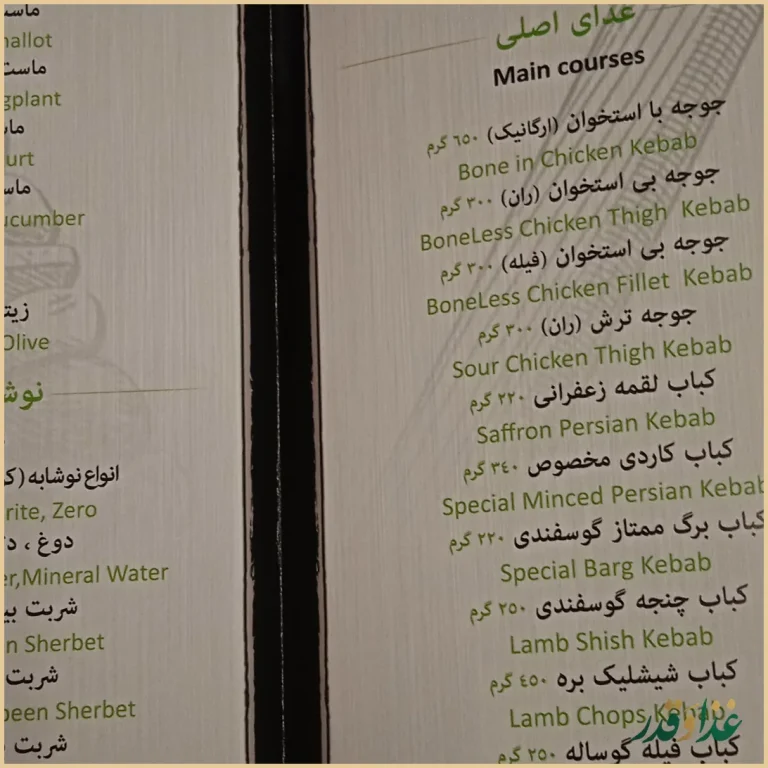 ماست
hallot
ماست
gplant
urt
ucumber
Olive
انواع نوشابه (ک
rite, Zero
دوغ ، د
er,Mineral Water
شربت بی
n Sherbet
شربت
een Sherbet
شربت
غذای اصلی
Main courses
جوجه با استخوان (ارگانیک) ٦٥٠ گرم
Bone in Chicken Kebab
جوجه بی استخوان (ران) ٣٠٠ گرم
BoneLess Chicken Thigh Kebab
جوجه بی استخوان (فیله) ٣٠٠ گرم
BoneLess Chicken Fillet Kebab
جوجه ترش (ران) ٣٠٠ گرم
Sour Chicken Thigh Kebab
کباب لقمه زعفرانی ٢٢٠ گرم
Saffron Persian Kebab
کباب کاردی مخصوص ٣٤٠ گرم
Special Minced Persian Kebab
کباب برگ ممتاز گوسفندی ٢٢٠ گرم
Special Barg Kebab
کباب چنجه گوسفندی ٢٥٠ گرم
Lamb Shish Kebab
کباب شیشلیک بره ٤٥٠ گرم
Lamb Chops Kebab
کباب فیله گوساله ٢٥٠ گرم
غذا و قدر